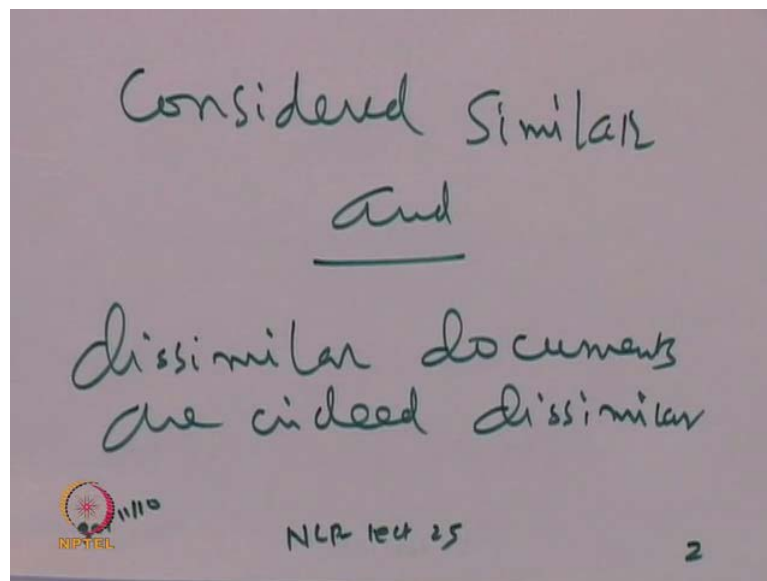 Considered Similar
and
dissimilar documents
are indeed dissimilar
11/10
NPTEL
NLP lect 25
2